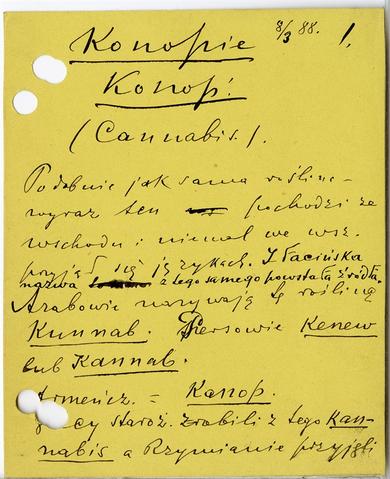 8/3 88. 1.
Konopie
Konop'.
(Cannabis.).
Podobnie jak sama roślina -
wyraz ten pochodzi ze
wschodu i niemal we wsz.
przyjął się językach. I łacińska
nazwa z tego samego powstała źródła.
Arabowie nazywają tę roślinę
Kunnab. Persowie Kenew
lub Kannab.
Armeńcz. = Kanop.
Grecy staroż. zrobili z tego Kan-
nabis a Rzymianie przyjęli